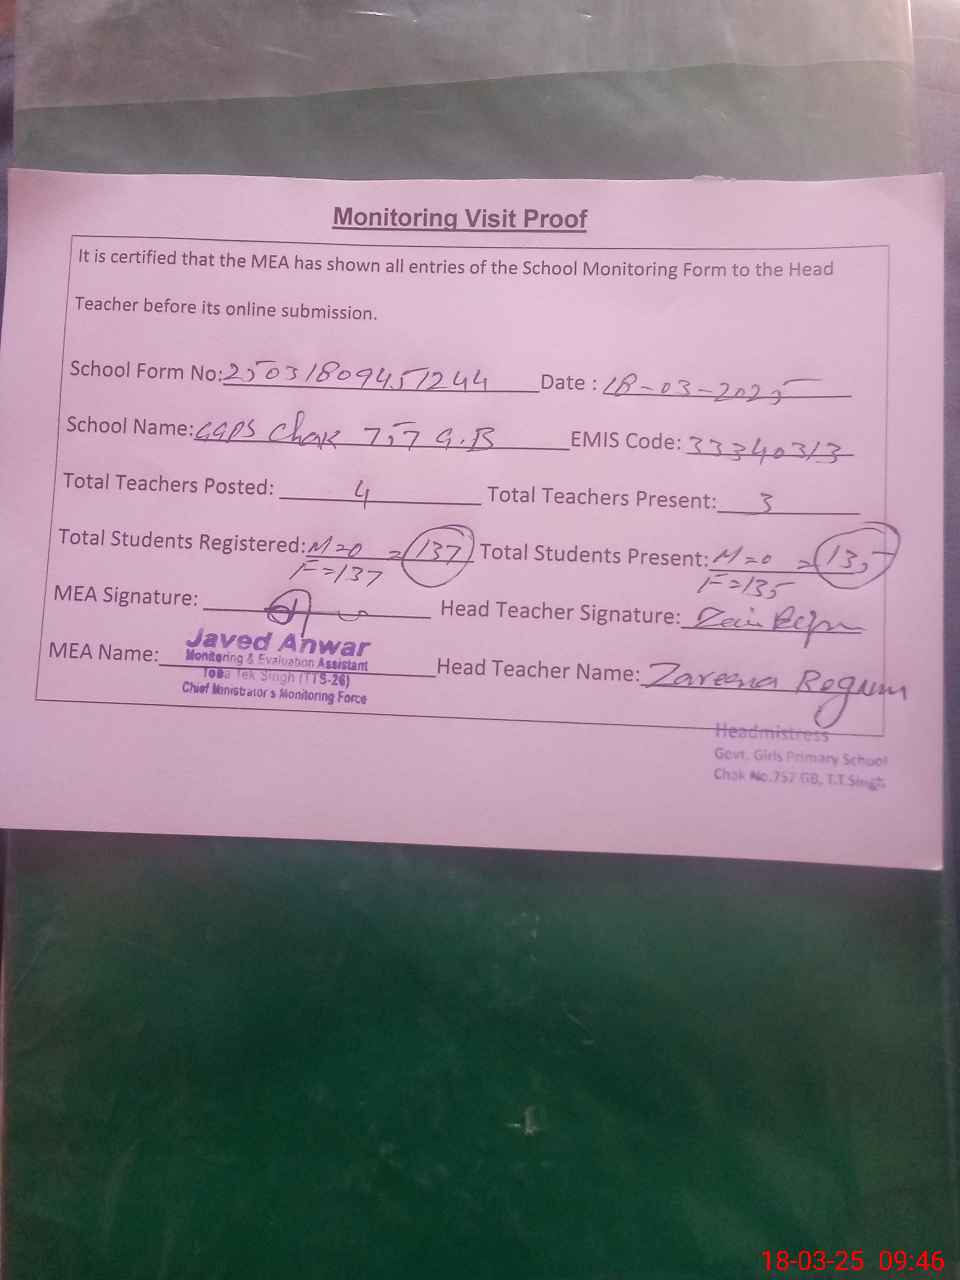 Monitoring Visit Proof
It is certified that the MEA has shown all entries of the School Monitoring Form to the Head
Teacher before its online submission.
School Form No: 25031809451244 Date : 18-03-2025
School Name: GGPS Chak 757 G.B EMIS Code: 33340313
Total Teachers Posted: 4 Total Teachers Present: 3
Total Students Registered: M=0 =137 Total Students Present: M=0 =135
F=137 F=135
MEA Signature: Head Teacher Signature:
Javed Anwar
Monitoring & Evaluation Assistant
MEA Name: Head Teacher Name: Zareena Begum
Toba Tek Singh (TTS-26)
Chief Ministrator's Monitoring Force
Headmistress
Govt. Girls Primary School
Chak No.757 GB, T.T.Singh
18-03-25 09:46